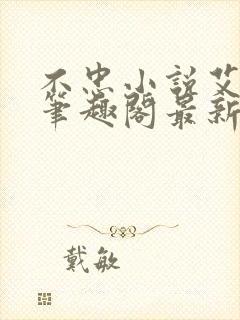 不忠小说艾
笔趣阁最新
戴敏